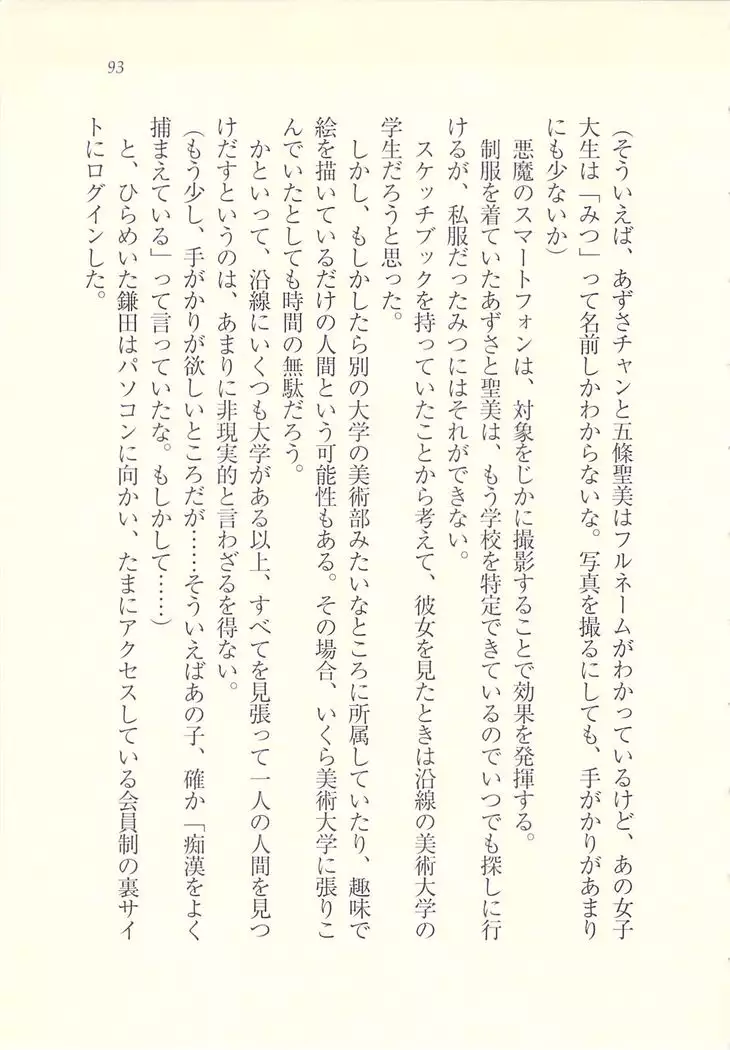 93
(そういえば、あずさチャンと五條聖美はフルネームがわかっているけど、あの女子
大生は「みつ」って名前しかわからないな。写真を撮るにしても、手がかりがあまり
にも少ないか)
悪魔のスマートフォンは、対象をじかに撮影することで効果を発揮する。
制服を着ていたあずさと聖美は、もう学校を特定できているのでいつでも探しに行
けるが、私服だったみつにはそれができない。
スケッチブックを持っていたことから考えて、彼女を見たときは沿線の美術大学の
学生だろうと思った。
しかし、もしかしたら別の大学の美術部みたいなところに所属していたり、趣味で
絵を描いているだけの人間という可能性もある。その場合、いくら美術大学に張りこ
んでいたとしても時間の無駄だろう。
かといって、沿線にいくつも大学がある以上、すべてを見張って一人の人間を見つ
けだすというのは、あまりに非現実的と言わざるを得ない。
(もう少し、手がかりが欲しいところだが……そういえばあの子、確か「痴漢をよく
捕まえている」って言っていたな。もしかして……)
と、ひらめいた鎌田はパソコンに向かい、たまにアクセスしている会員制の裏サイ
トにログインした。